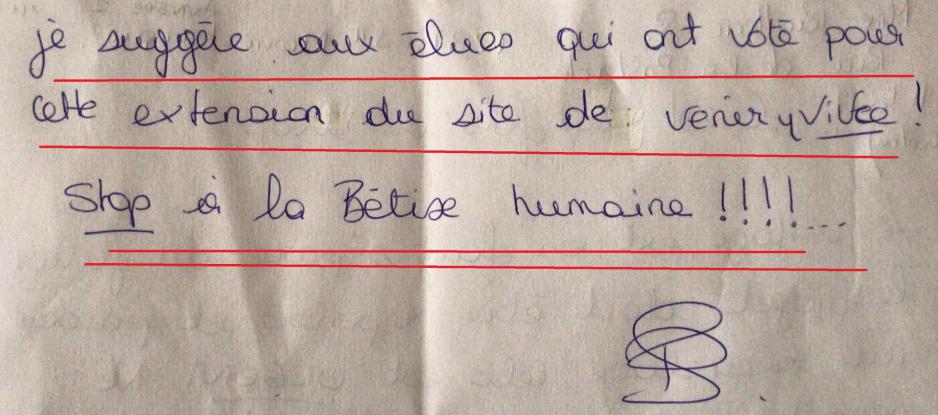 je suggère aux élues qui ont voté pour
cette extension du site de venir y vivre !
Stop à la Bêtise humaine !!!!...